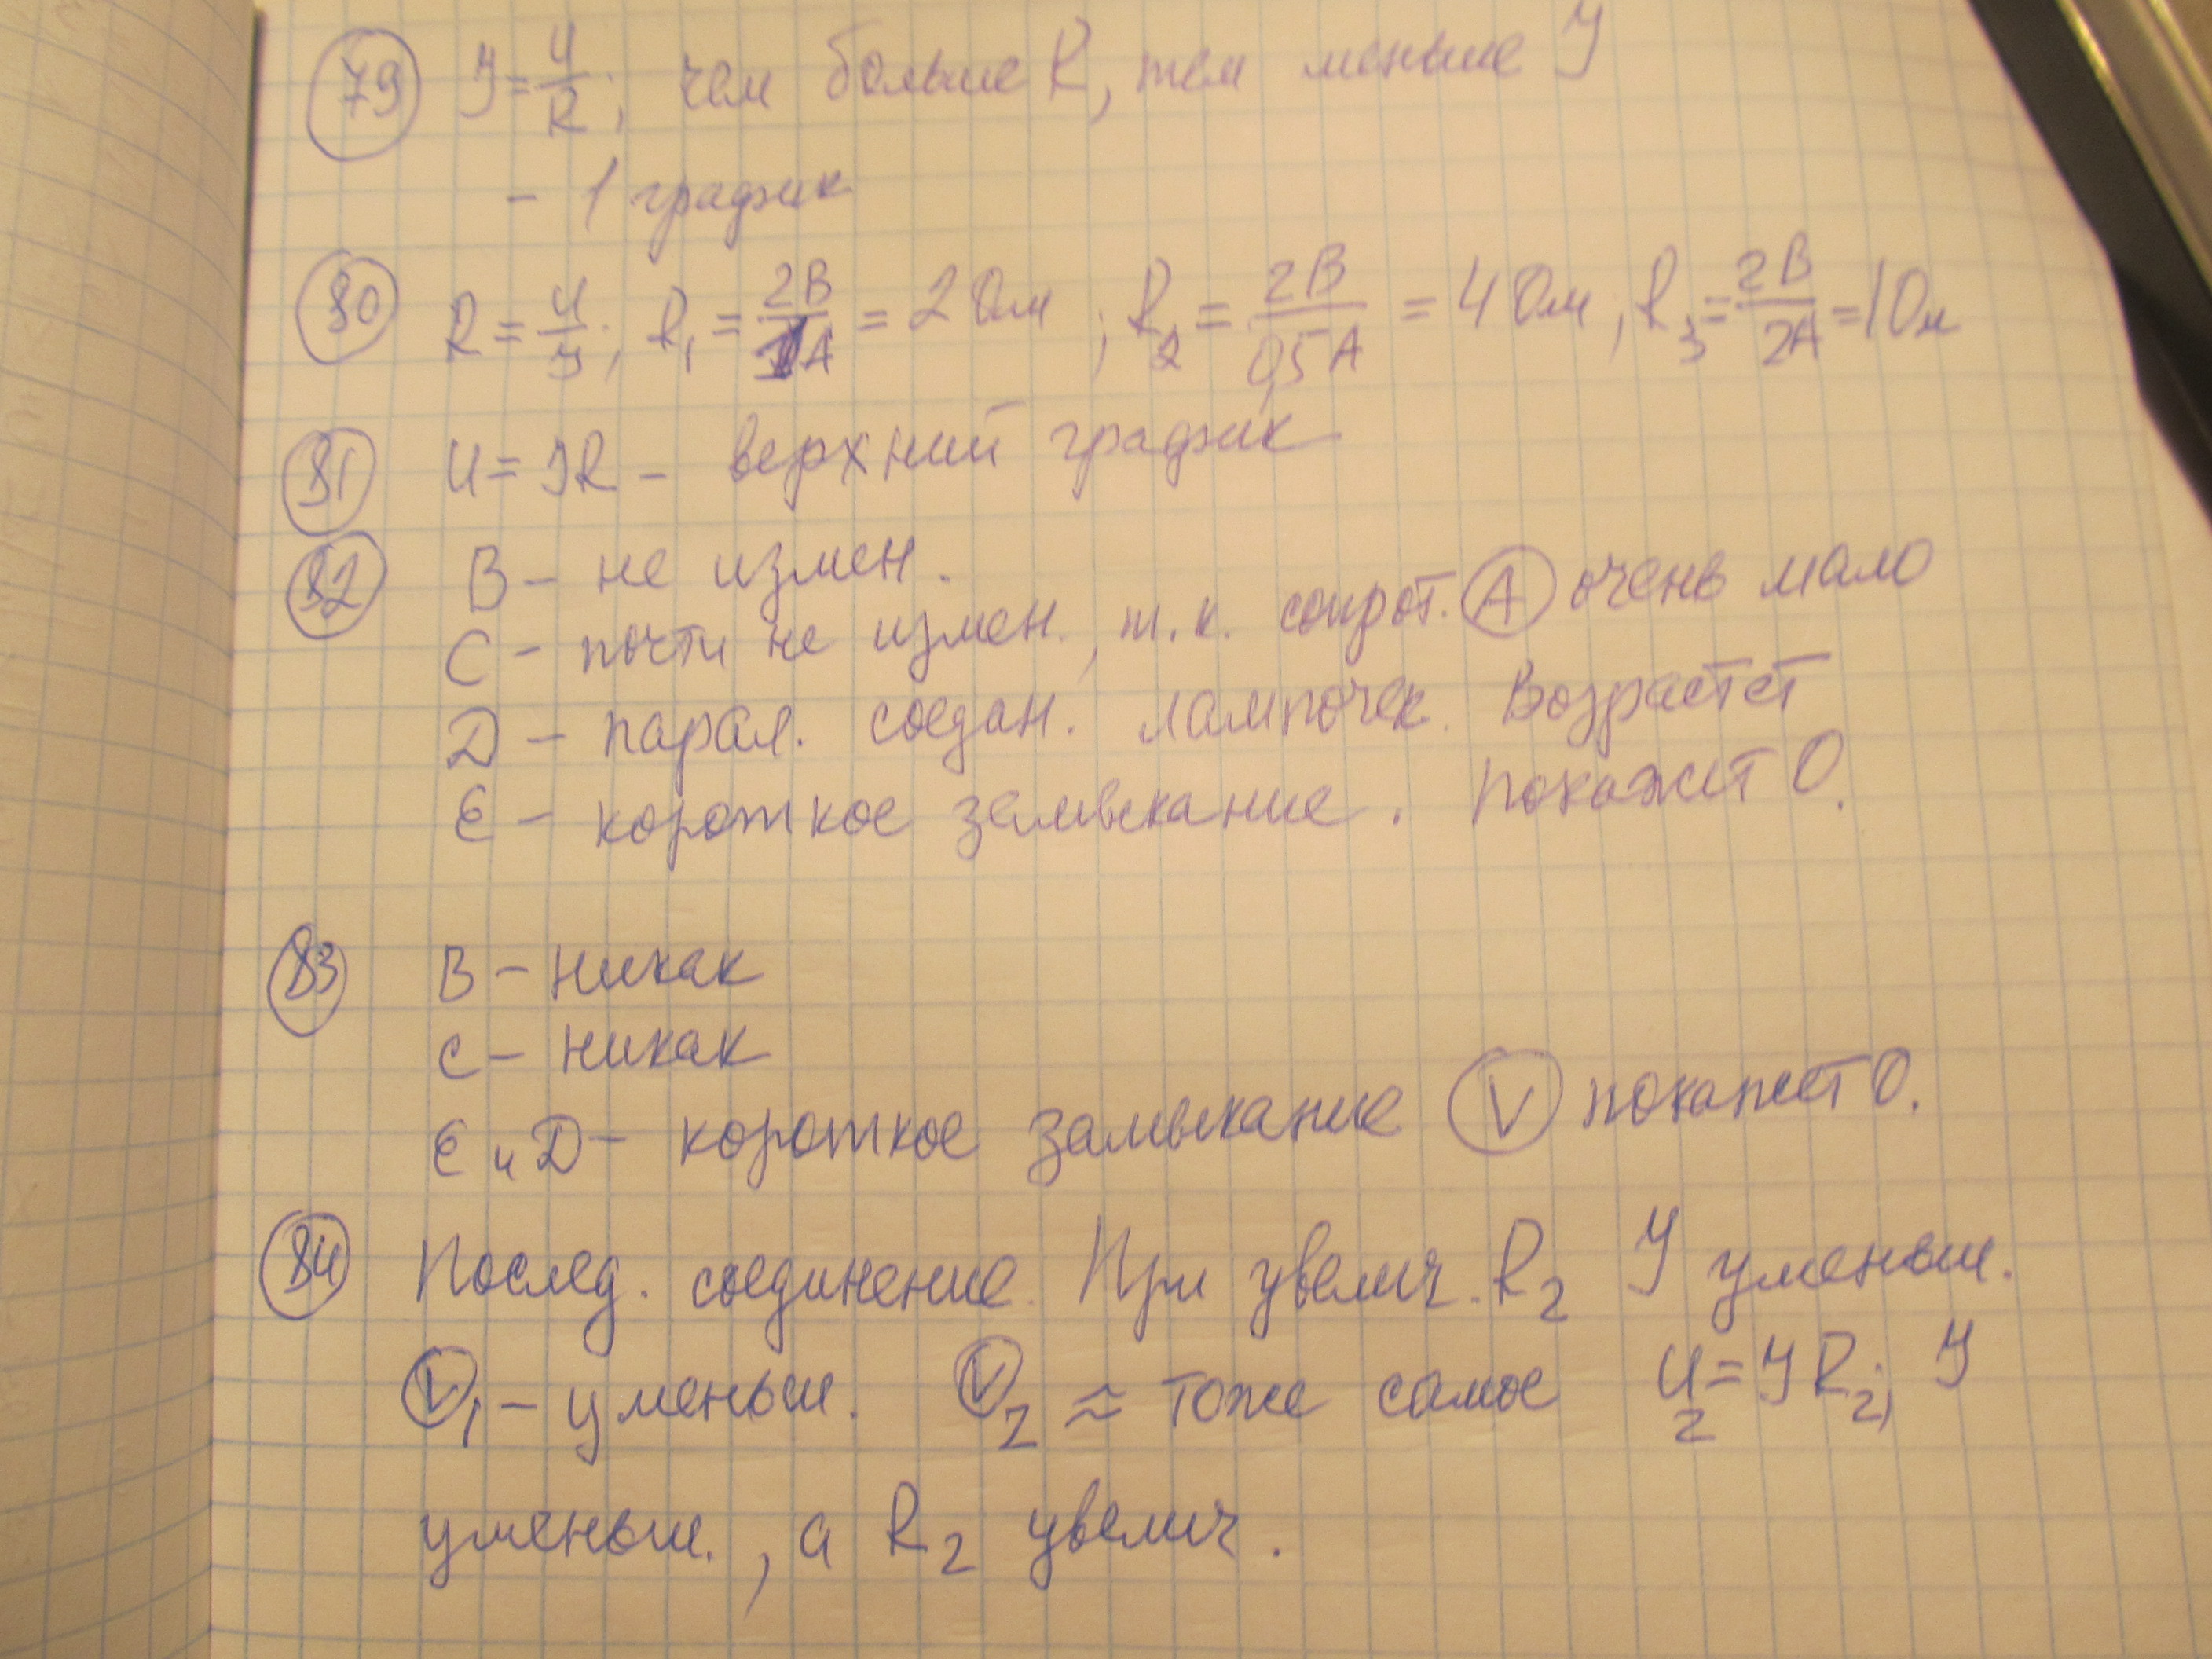 79 I = U/R; чем больше R, тем меньше I
- 1 график
80 R = U/I; R₁ = 2В/1А = 2 Ом; R₂ = 2В/0,5А = 4 Ом; R₃ = 2В/2А = 1 Ом
81 U = IR - верхний график
82 В - не измен.
С - почти не измен., т.к. сопрот. А очень мало
D - парал. соедин. лампочек. Возрастёт
Е - короткое замыкание. Покажет 0.
83 В - никак
С - никак
Е и D - короткое замыкание V покажет 0.
84 Послед. соединение. При увелич. R₂ I уменьш.
V₁ - уменьш. V₂ ≈ тоже самое U₂ = IR₂; I
уменьш., а R₂ увелич.